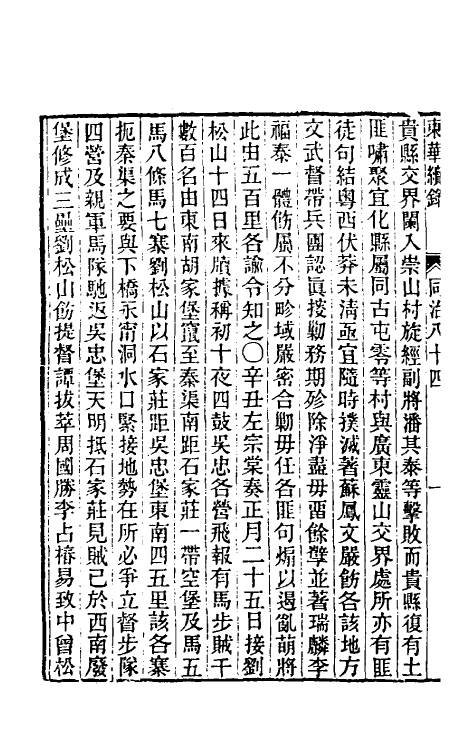 東華續錄 同治八十四 一
貴縣交界闌入崇山村旋經副將潘其泰等擊敗而貴縣復有土
匪嘯聚宜化縣屬同古屯零等村與廣東靈山交界處所亦有匪
徒句結粵西伏莽未清亟宜隨時撲滅著蘇鳳文嚴飭各該地方
文武督帶兵團認眞接勦務期殄除淨盡毋畱餘孽並著瑞麟李
福泰一體飭屬不分畛域嚴密合勦毋任各匪句煽以遏亂萌將
此由五百里各諭令知之〇辛丑左宗棠奏正月二十五日接劉
松山十四日來牘據稱初十夜四鼓吳忠各營飛報有馬步賊千
數百名由東南胡家堡竄至秦渠南距石家莊一帶空堡及馬五
馬八條馬七寨劉松山以石家莊距吳忠堡東南四五里該各寨
扼秦渠之要與下橋永甯洞水口緊接地勢在所必爭立督步隊
四營及親軍馬隊馳返吳忠堡天明抵石家莊見賊已於西南廢
堡修成三壘劉松山飭提督譚拔萃周國勝李占椿易致中曾松